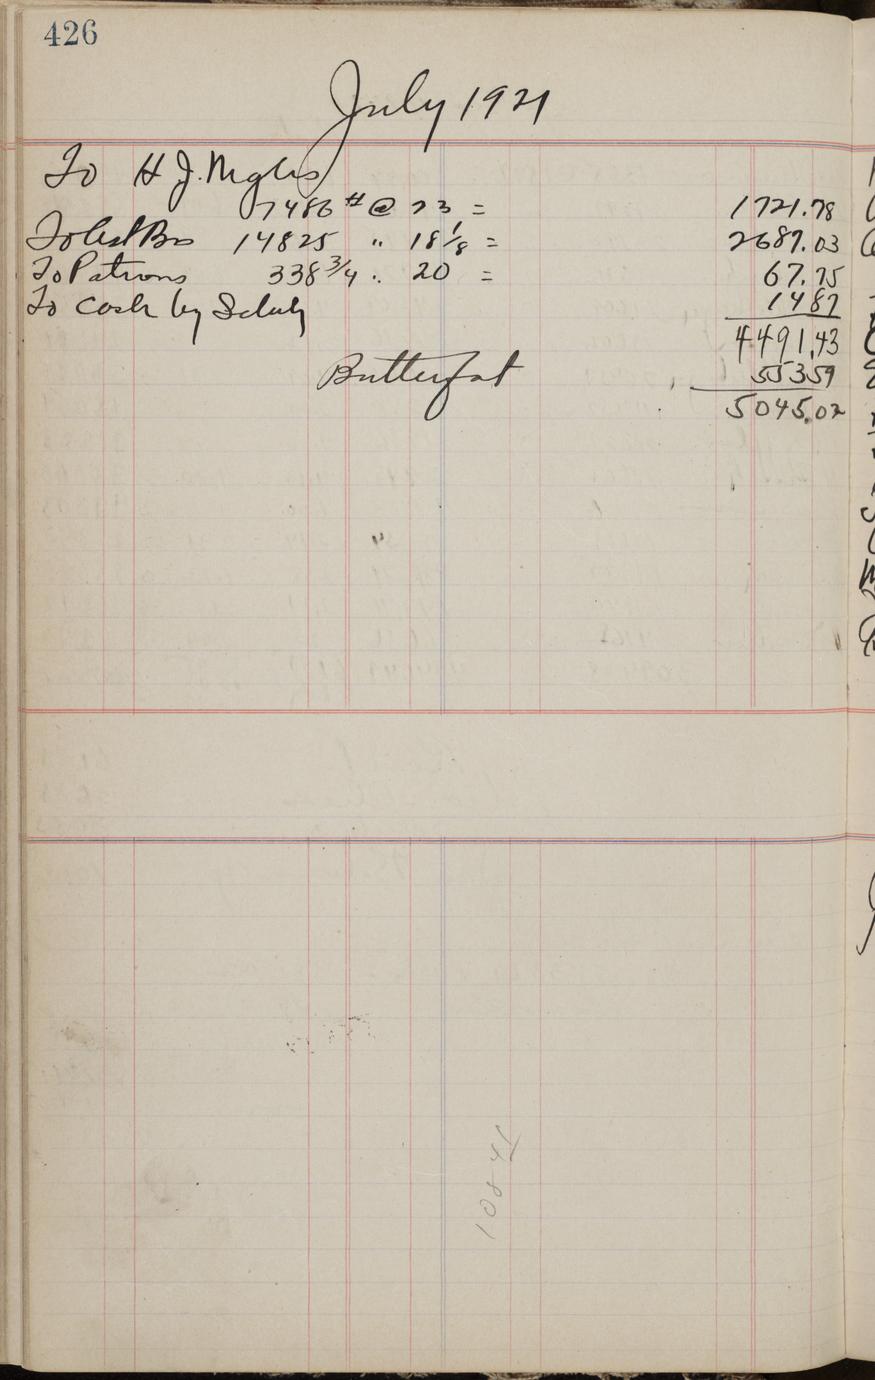 426
July 1921
To H J.
7486 # @ 23 = 1721.78
14825 " 18 1/8 = 2687.03
To Patrons 338 3/4 " 20 = 67.75
To Cash by 1487
4491.43
Butterfat 55359
5045.02